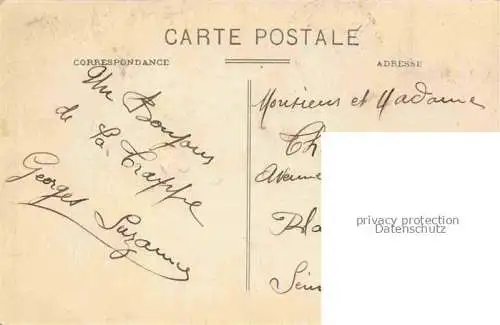 CARTE POSTALE
CORRESPONDANCE
ADRESSE
Un Bonjour
de La Trappe
Georges Suzanne
Monsieur et Madame
Th
Avenue
Pla
Sein
privacy protection
Datenschutz